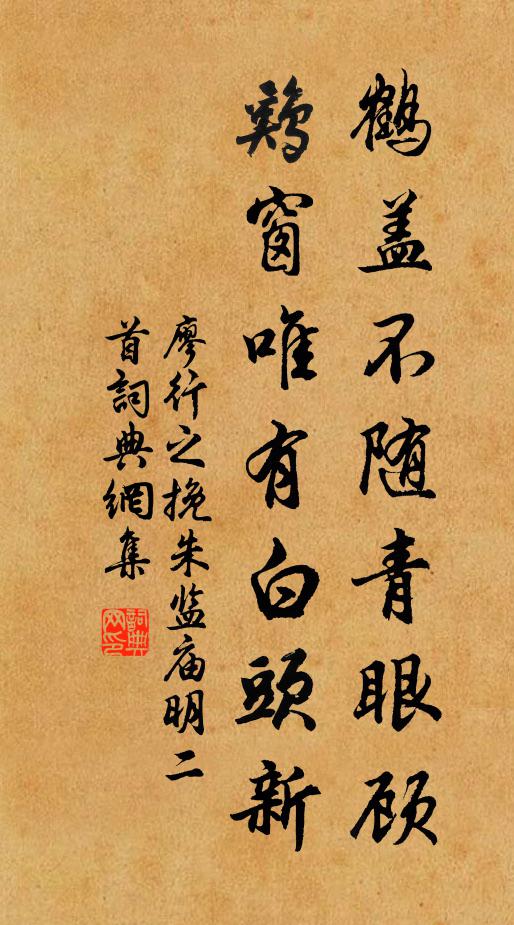 鹤盖不随青眼顾
鷄窗唯有白頭新
廖行之挽朱监庙明二
首詞典網集
詞典网印